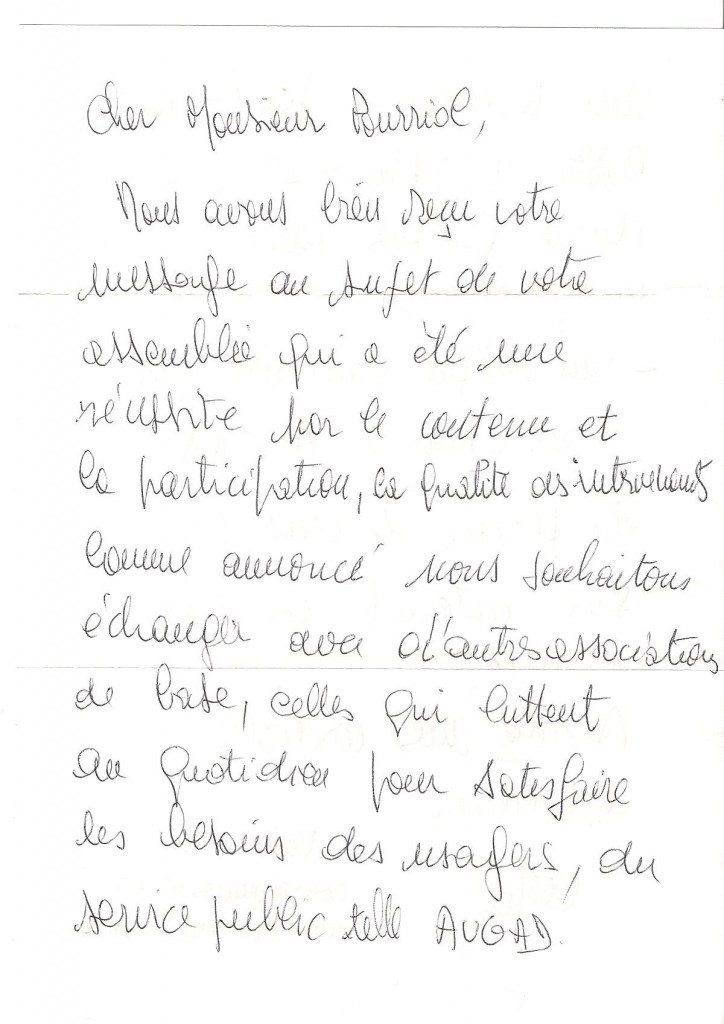 Cher Monsieur Pourriol,
Nous avons bien reçu votre
message au sujet de votre
assemblée qui a été une
réussite par le contenu et
la participation, la qualité des intervenants
Comme annoncé nous souhaitons
échanger avec d'autres associations
de base, celles qui luttent
au quotidien pour satisfaire
les besoins des usagers, du
service public telle AUGAD.